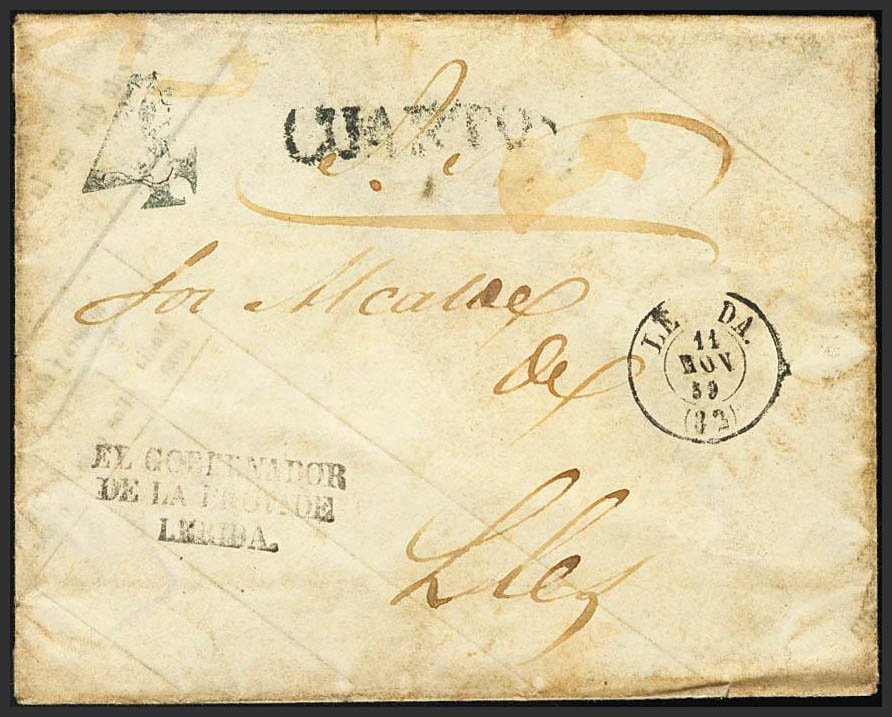 4 CUARTOS
Sor Alcalde
de
LE DA.
11
NOV
59
(32)
EL GOBERNADOR
DE LA PROV. DE
LERIDA.